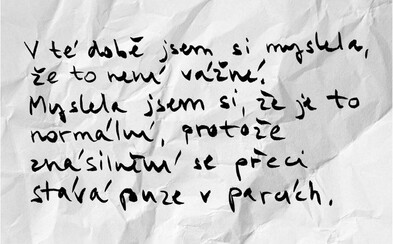 V té době jsem si myslela,
že to není vážné.
Myslela jsem si, že je to
normální, protože
znásilnění se přeci
stává pouze v parcích.